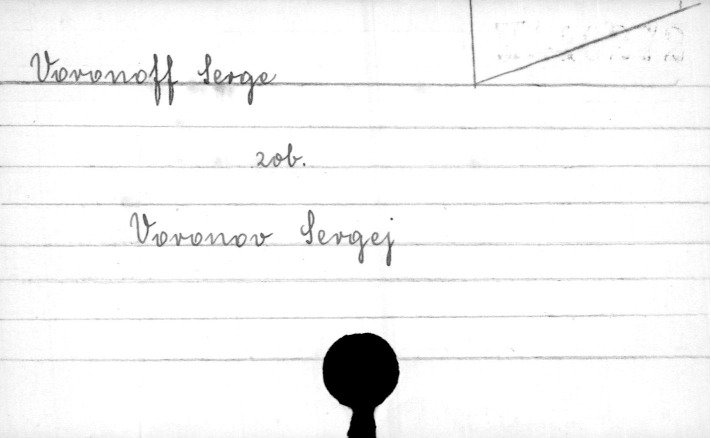 Voronoff Serge
zob.
Voronov Sergej